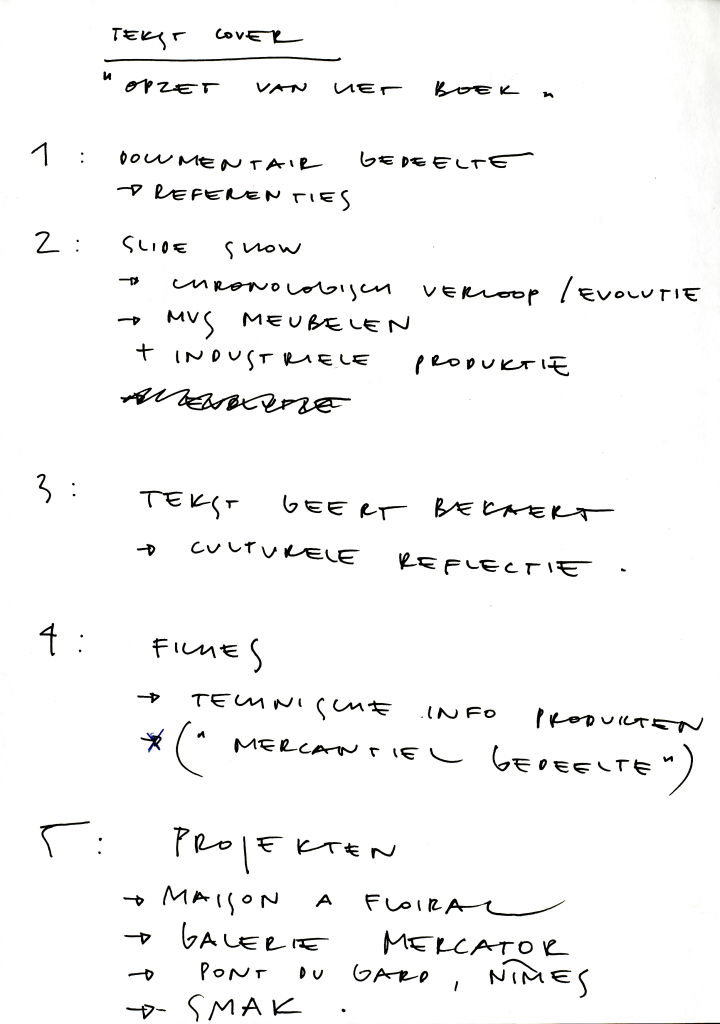 TEKST COVER
"OPZET VAN HET BOEK"
1: DOCUMENTAIR GEDEELTE
→ REFERENTIES
2: SLIDE SHOW
→ CHRONOLOGISCH VERLOOP / EVOLUTIE
→ MVS MEUBELEN
+ INDUSTRIELE PRODUKTIE
3: TEKST GEERT BEKAERT
→ CULTURELE REFLECTIE.
4: FICHES
→ TECHNISCHE INFO PRODUKTEN
("MERCANTIEL GEDEELTE")
5: PROJEKTEN
→ MAISON A FLOIRAC
→ GALERIE MERCATOR
→ PONT DU GARD, NÎMES
→ SMAK.